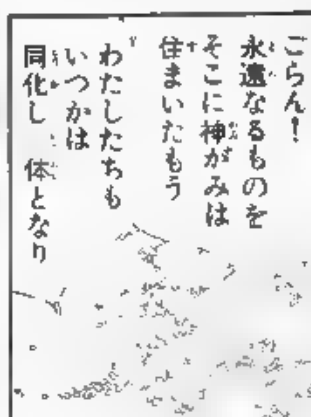 ごらん!
永遠なるものを
そこに神がみは
住まいたもう
わたしたちも
いつかは
同化し 体となり